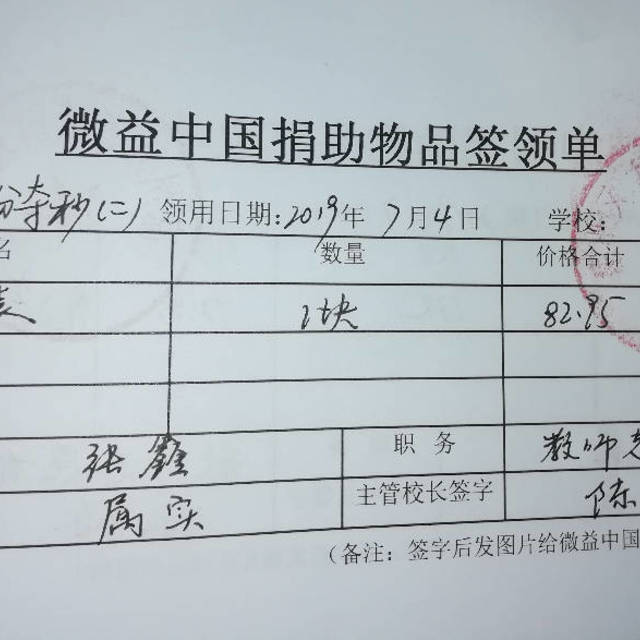 微益中国捐助物品签领单
分夺秒(二) 领用日期:2019年 7月4日 学校:
名 数量 价格合计
表 2块 82.95
张鑫 职务 教师
属实 主管校长签字 陈
(备注:签字后发图片给微益中国